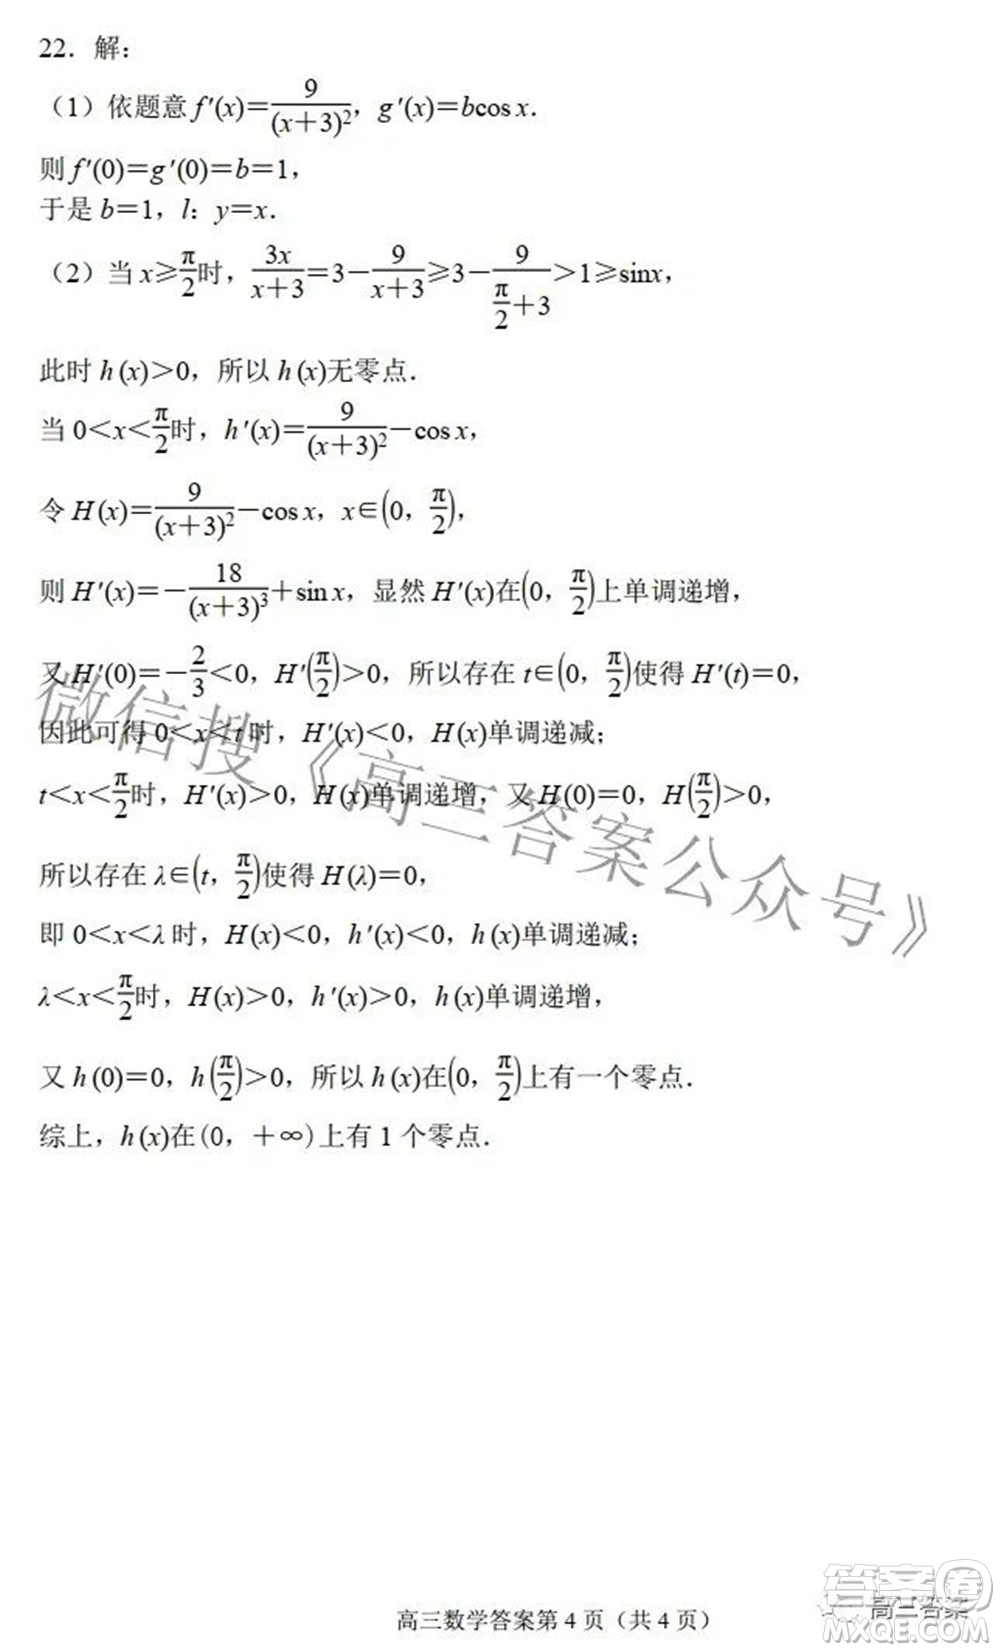 22．解：
（1）依题意 f′(x)＝9/(x＋3)²，g′(x)＝bcos x．
则 f′(0)＝g′(0)＝b＝1，
于是 b＝1，l：y＝x．
（2）当 x≥π/2时，3x/(x＋3)＝3－9/(x＋3)≥3－9/(π/2＋3)＞1≥sinx，
此时 h (x)＞0，所以 h (x)无零点．
当 0＜x＜π/2时，h′(x)＝9/(x＋3)²－cos x，
令 H (x)＝9/(x＋3)²－cos x，x∈(0，π/2)，
则 H′(x)＝－18/(x＋3)³＋sin x，显然 H′(x)在(0，π/2)上单调递增，
又 H′(0)＝－2/3＜0，H′(π/2)＞0，所以存在 t∈(0，π/2)使得 H′(t)＝0，
因此可得 0＜x＜t 时，H′(x)＜0，H (x)单调递减；
t＜x＜π/2时，H′(x)＞0，H (x)单调递增，又 H (0)＝0，H(π/2)＞0，
所以存在 λ∈(t，π/2)使得 H (λ)＝0，
即 0＜x＜λ 时，H (x)＜0，h′(x)＜0，h (x)单调递减；
λ＜x＜π/2时，H (x)＞0，h′(x)＞0，h (x)单调递增，
又 h (0)＝0，h(π/2)＞0，所以 h (x)在(0，π/2)上有一个零点．
综上，h (x)在(0，＋∞)上有 1 个零点．
微信搜《高三答案公众号》
高三数学答案第 4 页（共 4 页）
高三答案
答案圈
MXQE.COM